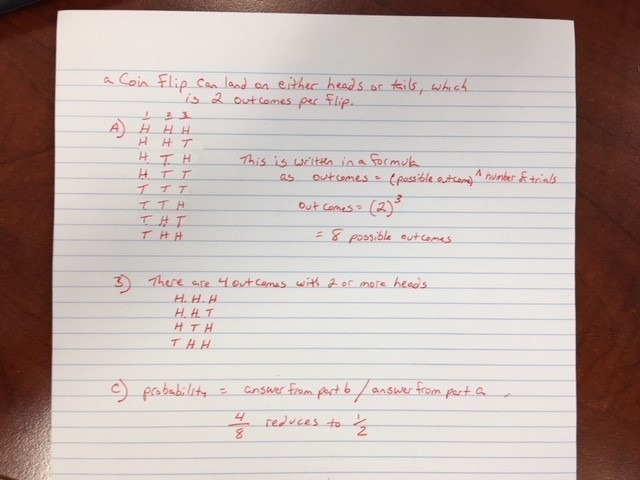 a Coin Flip can land on either heads or tails, which
is 2 outcomes per flip.
1 2 3
A) H H H
H H T
H T H
H T T
T T T
T T H
T H T
T H H
This is written in a formula
as outcomes = (possible outcome)^ number of trials
outcomes = (2)³
= 8 possible outcomes
B) There are 4 outcomes with 2 or more heads
H. H. H
H. H. T
H T H
T H H
C) probability = answer from part b / answer from part a
4/8 reduces to 1/2